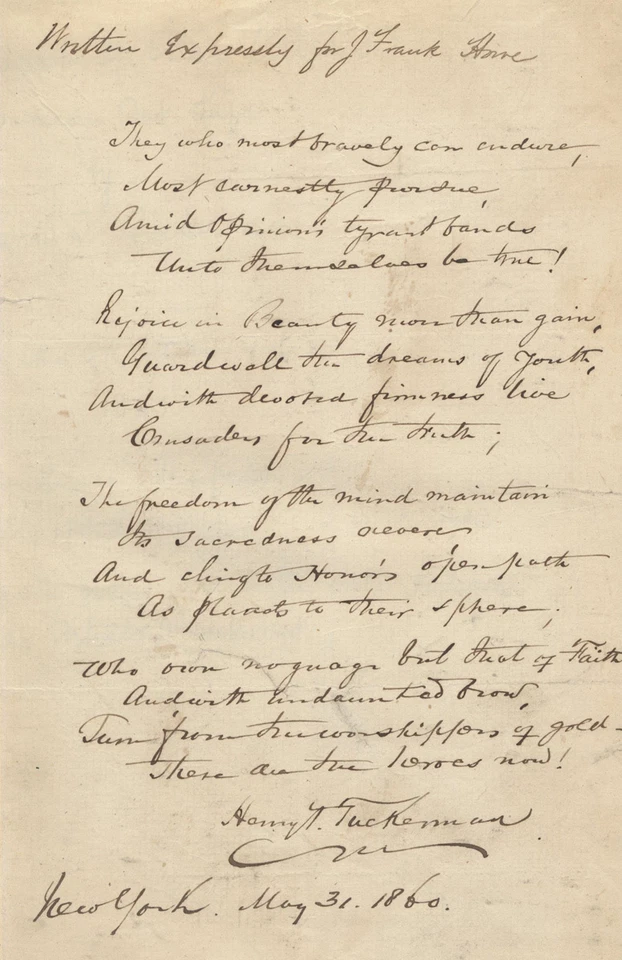 Written Expressly for J Frank Howe
They who most bravely can endure,
Most earnestly pursue,
Amid Opinion's tyrant bands
Unto themselves be true!
Rejoice in Beauty more than gain,
Guard well the dreams of Youth,
And with devoted firmness live
Crusaders for the truth;
The freedom of the mind maintain
Its sacredness revere,
And cling to Honor's open path
As planets to their sphere;
Who own no guage but that of Faith
And with undaunted brow,
Turn from the worshippers of gold -
These are the heroes now!
Henry T. Tuckerman
New York. May 31. 1860.